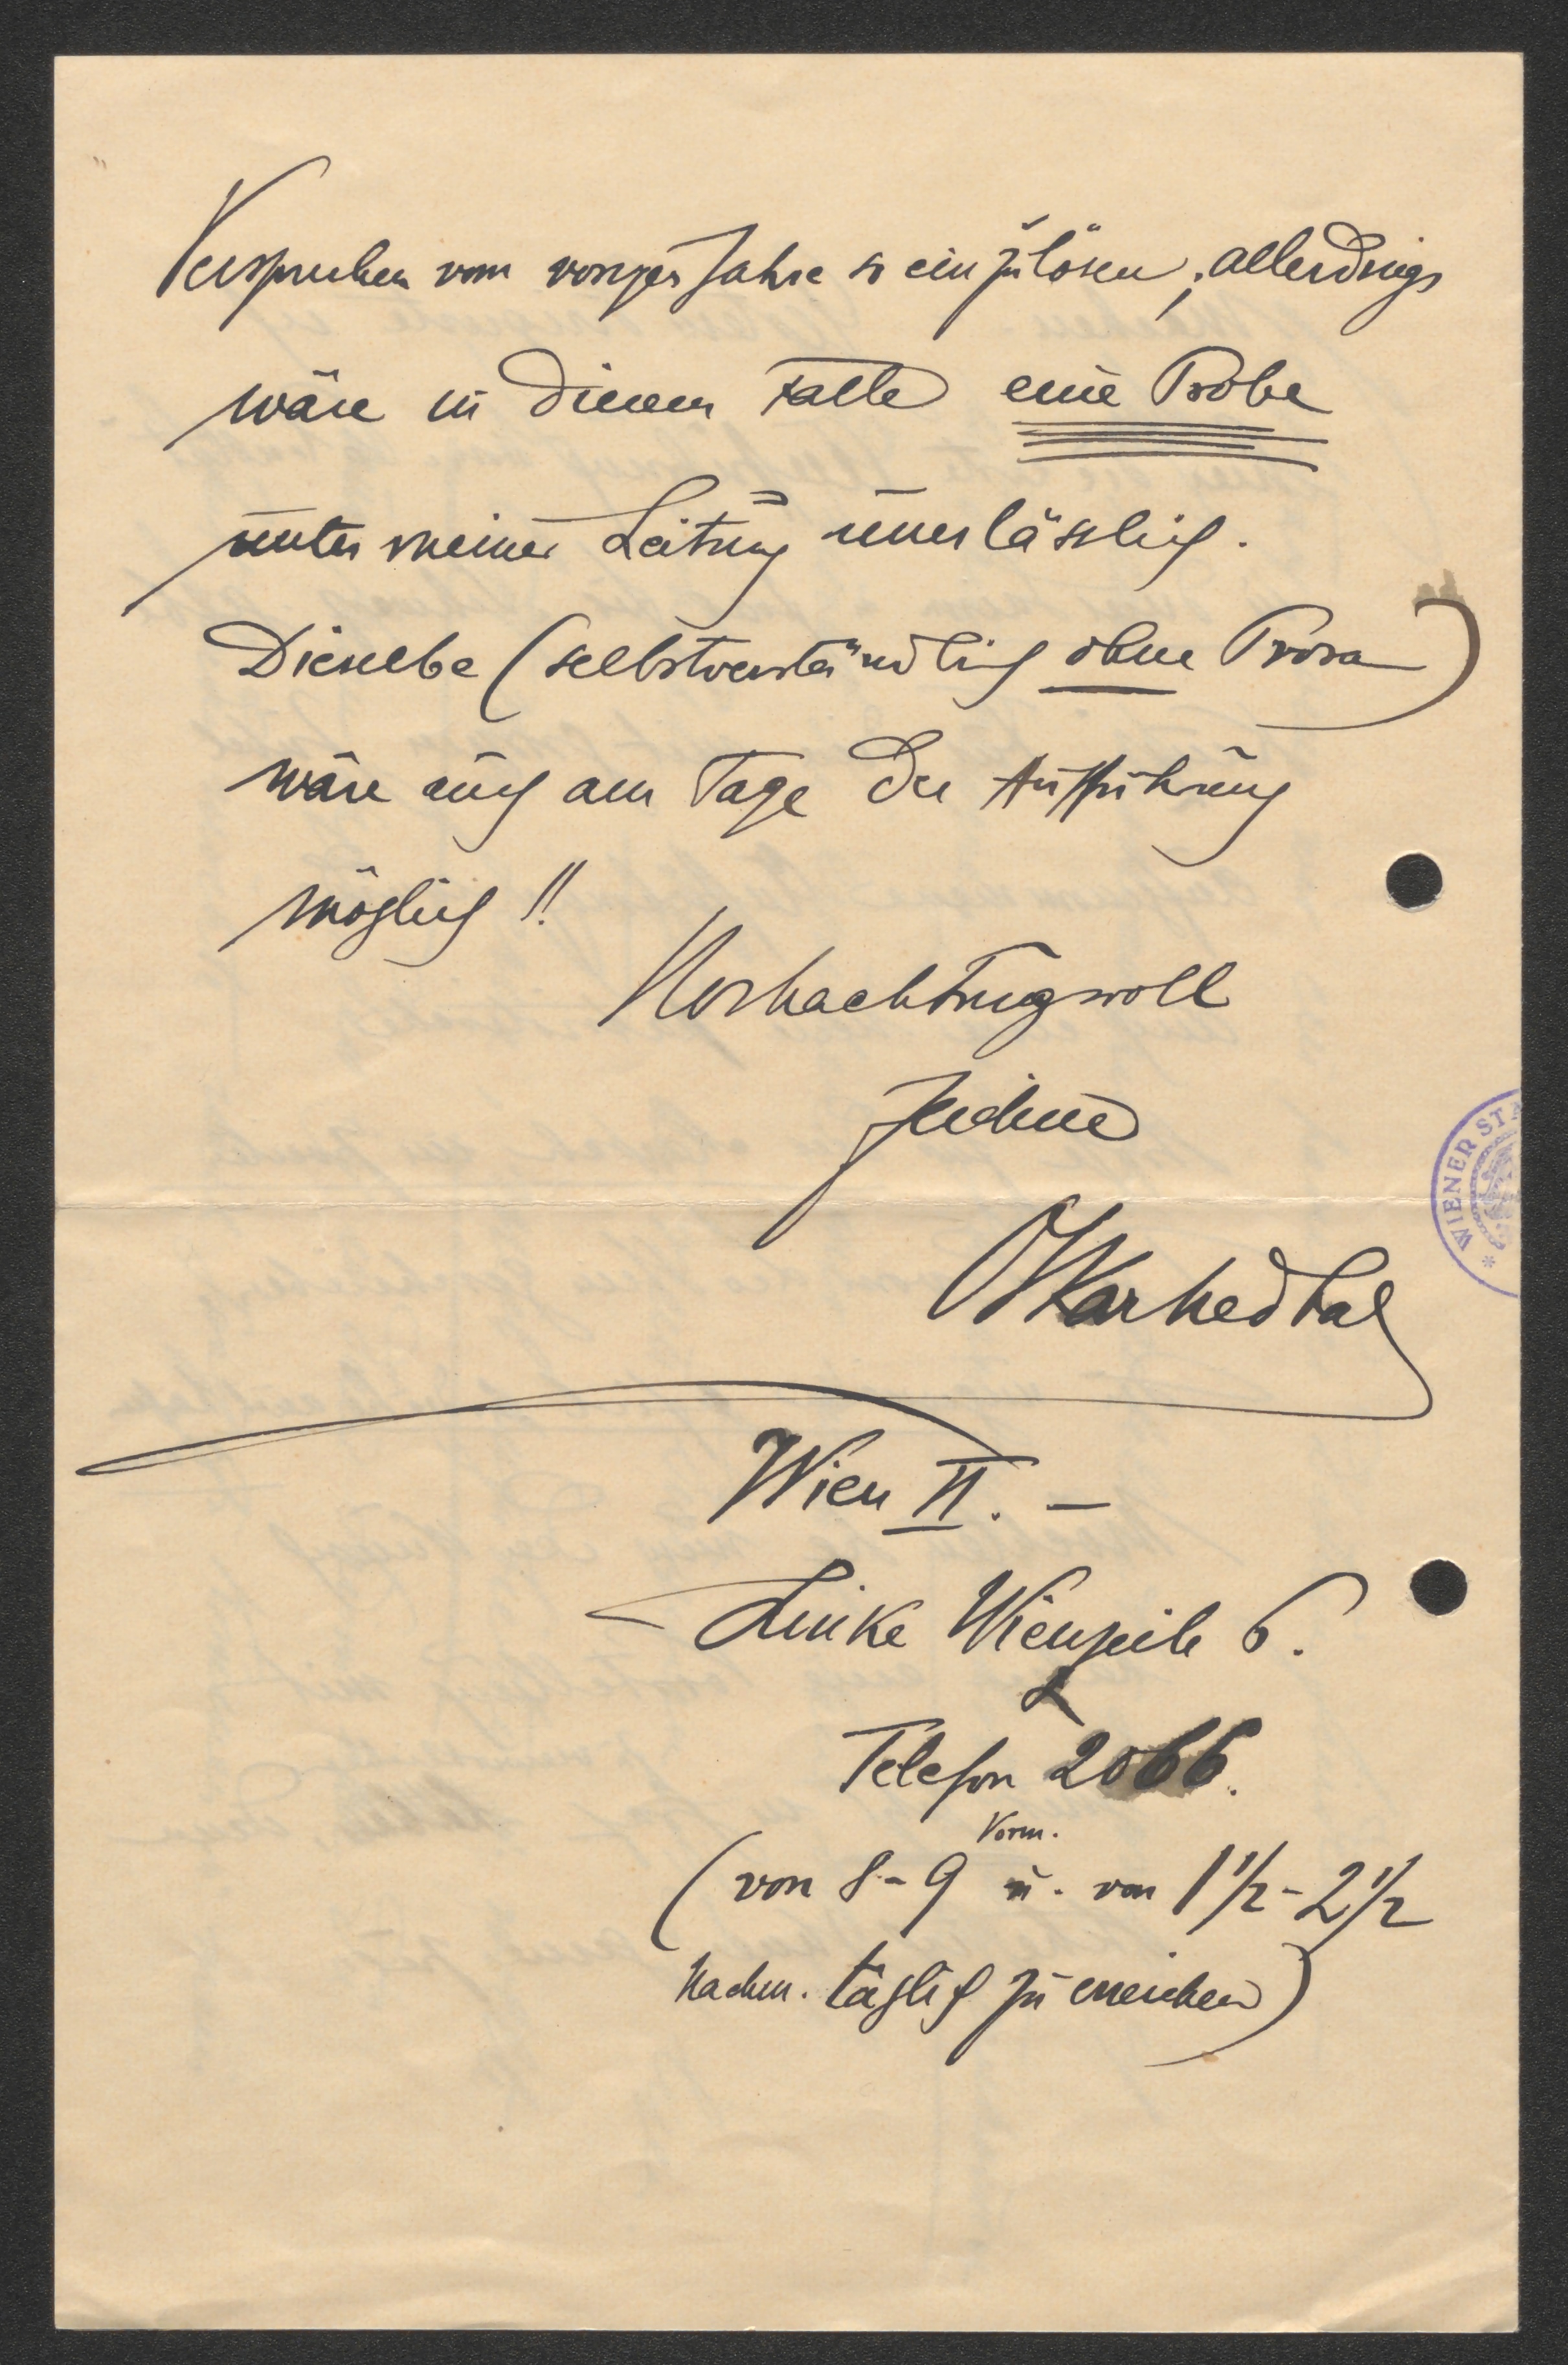 Versprechen vom vorigen Jahre so einzulösen; allerdings
wäre in diesem Falle eine Probe
unter meiner Leitung unerlässlich.
Dieselbe (selbstverständlich ohne Prosa)
wäre auch am Tage der Aufführung
möglich!!
Hochachtungsvoll
Ihr
OskarNedbal
Wien VI. –
Linke Wienzeile 6.
Telefon 2066.
Vorm.
(von 8–9 u. von 1 1/2 – 2 1/2
Nachm. täglich zu erreichen)
WIENER ST